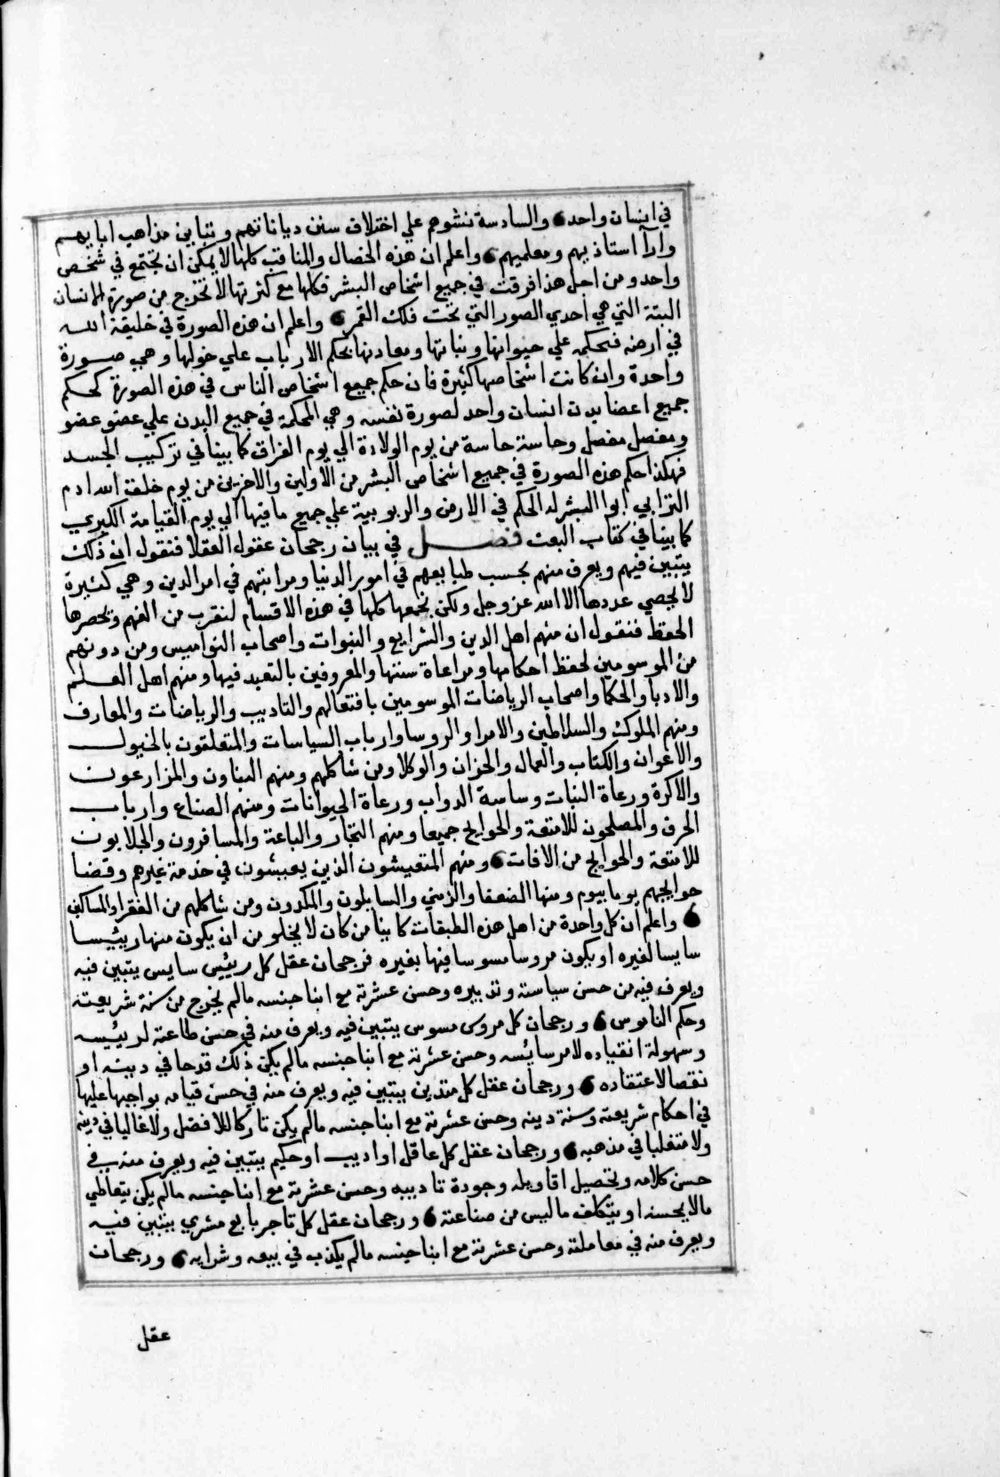 في انسان واحد والسادسة نشوهم علي اختلاف سنن دياناتهم وتباين مذاهب ابايهم
وارآ استاذيهم ومعلميهم واعلم ان هذه الخصال والمناقب كلها لا يمكن ان تجتمع في شخص
واحد ومن اجل هذا فرقت في جميع اشخاص البشر فكلها مع كثرتها لا تخرج من صورة الانسان
البتة التي هي احدي الصور التي تحت فلك القمر واعلم ان هذه الصورة في خليقة الله
في ارضه فتحكم علي حيوانها ونباتها ومعادنها بحكم الارباب علي خولها وهي صورة
واحدة وان كانت اشخاصها كثيرة فان حكم جميع اشخاص الناس في هذه الصورة كحكم
جميع اعضا بدن انسان واحد لصورة نفسه وهي المحكمة في جميع البدن علي عضو عضو
ومفصل مفصل وحاسة حاسة من يوم الولادة الي يوم الفراق كما بينا في تركيب الجسد
فهكذا حكم هذه الصورة في جميع اشخاص البشر من الاولين والاخرين من يوم خلق الله ادم
الترابي ابوا البشر له الحكم في الارض والربوبية علي جميع ما فيها الي يوم القيامة الكبري
كما بينا في كتاب البعث فصل في بيان رجحان عقول العقلا فنقول ان ذلك
يتبين فيهم ويعرف منهم بحسب طبايعهم في امور الدنيا ومراتبهم في امر الدين وهي كثيرة
لا يحصي عددها الا الله عز وجل ولكن نجمعها كلها في هذه الاقسام لنقرب من الفهم ويحصرها
الحفظ فنقول ان منهم اهل الدين والشرايع والنبوات واصحاب النواميس ومن دونهم
من الموسومين لحفظ احكامها ومراعاة سننها والمعروفين بالتعبد فيها ومنهم اهل العلم
والادبا والحكما واصحاب الرياضات الموسومين بافتعالهم والتاديب والرياضات والمعارف
ومنهم الملوك والسلاطين والامرا والروسا وارباب السياسات والمتعلقون بالخيول
والاعوان والكتاب والعمال والخزان والوكلا ومن شاكلهم ومنهم البناون والمزارعون
والاكرة ورعاة النبات وساسة الدواب ورعاة الحيوانات ومنهم الصناع وارباب
الحرف والمصلحون للامتعة والحوايج جميعا ومنهم التجار والباعة والمسافرون والجلابون
للامتعة والحوايج من الافات ومنهم المتعيشون الذين يعيشون في خدمة غيرهم وقضا
حوايجهم يوما بيوم ومنها الضعفا والزمني والسايلون والمكدون ومن شاكلهم من الفقرا والمساكين
واعلم ان كل واحدة من اهل هذه الطبقات كاينا من كان لا يخلو من ان يكون منها رييسا
سايسا لغيره او يكون مروسا مسوسا فيها بغيره فرجحان عقل كل رييس سايس يتبين فيه
ويعرف فيه من حسن سياسته وتدبيره وحسن عشرته مع ابنا جنسه مالم يخرج من سنة شريعته
وحكم الناموس ورجحان كل مروس مسوس يتبين فيه ويعرف منه في حسن طاعته لرييسه
وسهولة انقياده لامر سائسه وحسن عشرته مع ابنا جنسه مالم يكن ذلك قدحا في دينه او
نقصا لاعتقاده ورجحان عقل كل متدين يتبين فيه ويعرف منه في حسن قيامه بواجبها عليها
في احكام شريعته وسنة دينه وحسن عشرته مع ابنا جنسه مالم يكن تاركا للافضل ولا غاليا في دينه
ولا متغلبا في مذهبه ورجحان عقل كل عاقل او اديب او حكيم يتبين فيه ويعرف منه في
حسن كلامه وتحصيل اقاويله وجودة تاديبه وحسن عشرته مع ابنا جنسه مالم يكن يتعاطي
مالا يحسنه او يتكلف ما ليس من صناعته ورجحان عقل كل تاجر بايع مشري يتبين فيه
ويعرف منه في معاملته وحسن عشرته مع ابنا جنسه مالم يكذب في بيعه وشرايه ورجحان
عقل